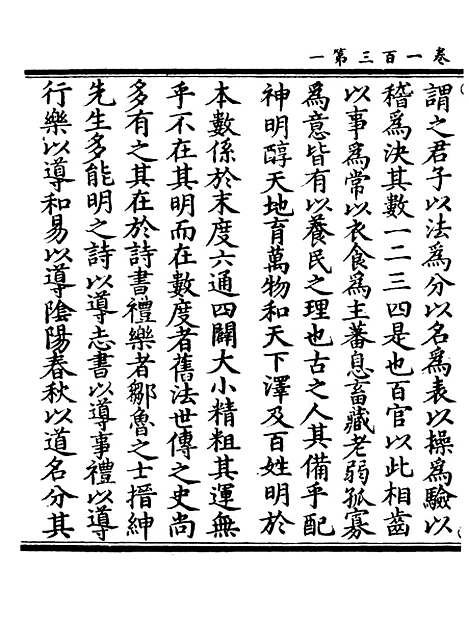 卷一百三第一
謂之君子以法爲分以名爲表以操爲驗以
稽爲決其數一二三四是也百官以此相齒
以事爲常以衣食爲主蕃息畜藏老弱孤寡
爲意皆有以養民之理也古之人其備乎配
神明醇天地育萬物和天下澤及百姓明於
本數係於末度六通四闢大小精粗其運無
乎不在其明而在數度者舊法世傳之史尚
多有之其在於詩書禮樂者鄒魯之士搢紳
先生多能明之詩以導志書以導事禮以導
行樂以導和易以導陰陽春秋以道名分其